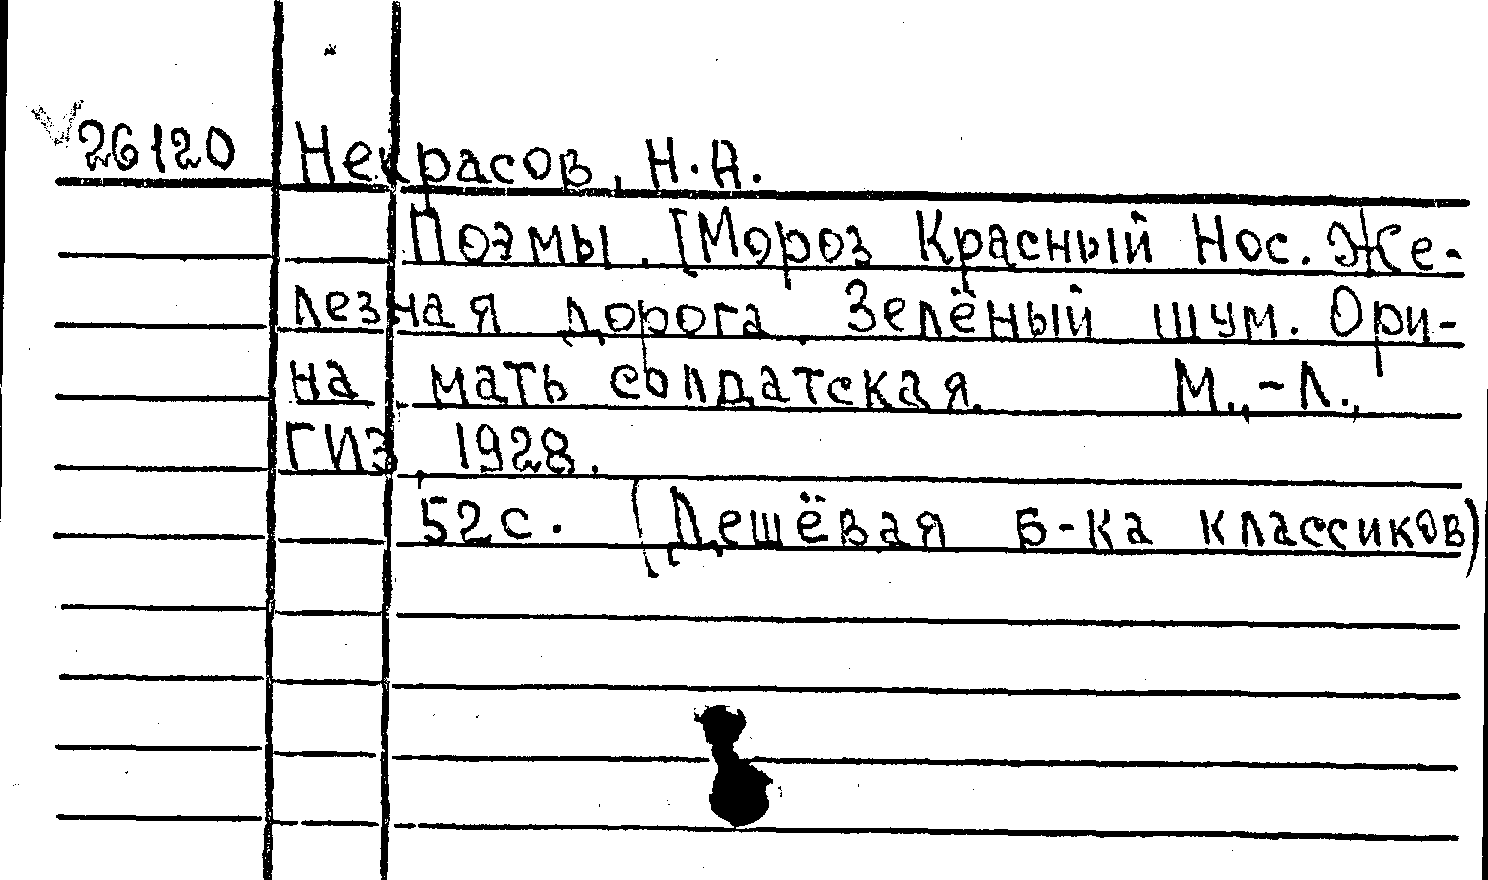 26120 Некрасов, Н.А.
Поэмы. [Мороз Красный Нос. Же-
лезная дорога. Зелёный шум. Ори-
на мать солдатская. М.,-Л.,
ГИЗ, 1928.
52с. (Дешёвая б-ка классиков)